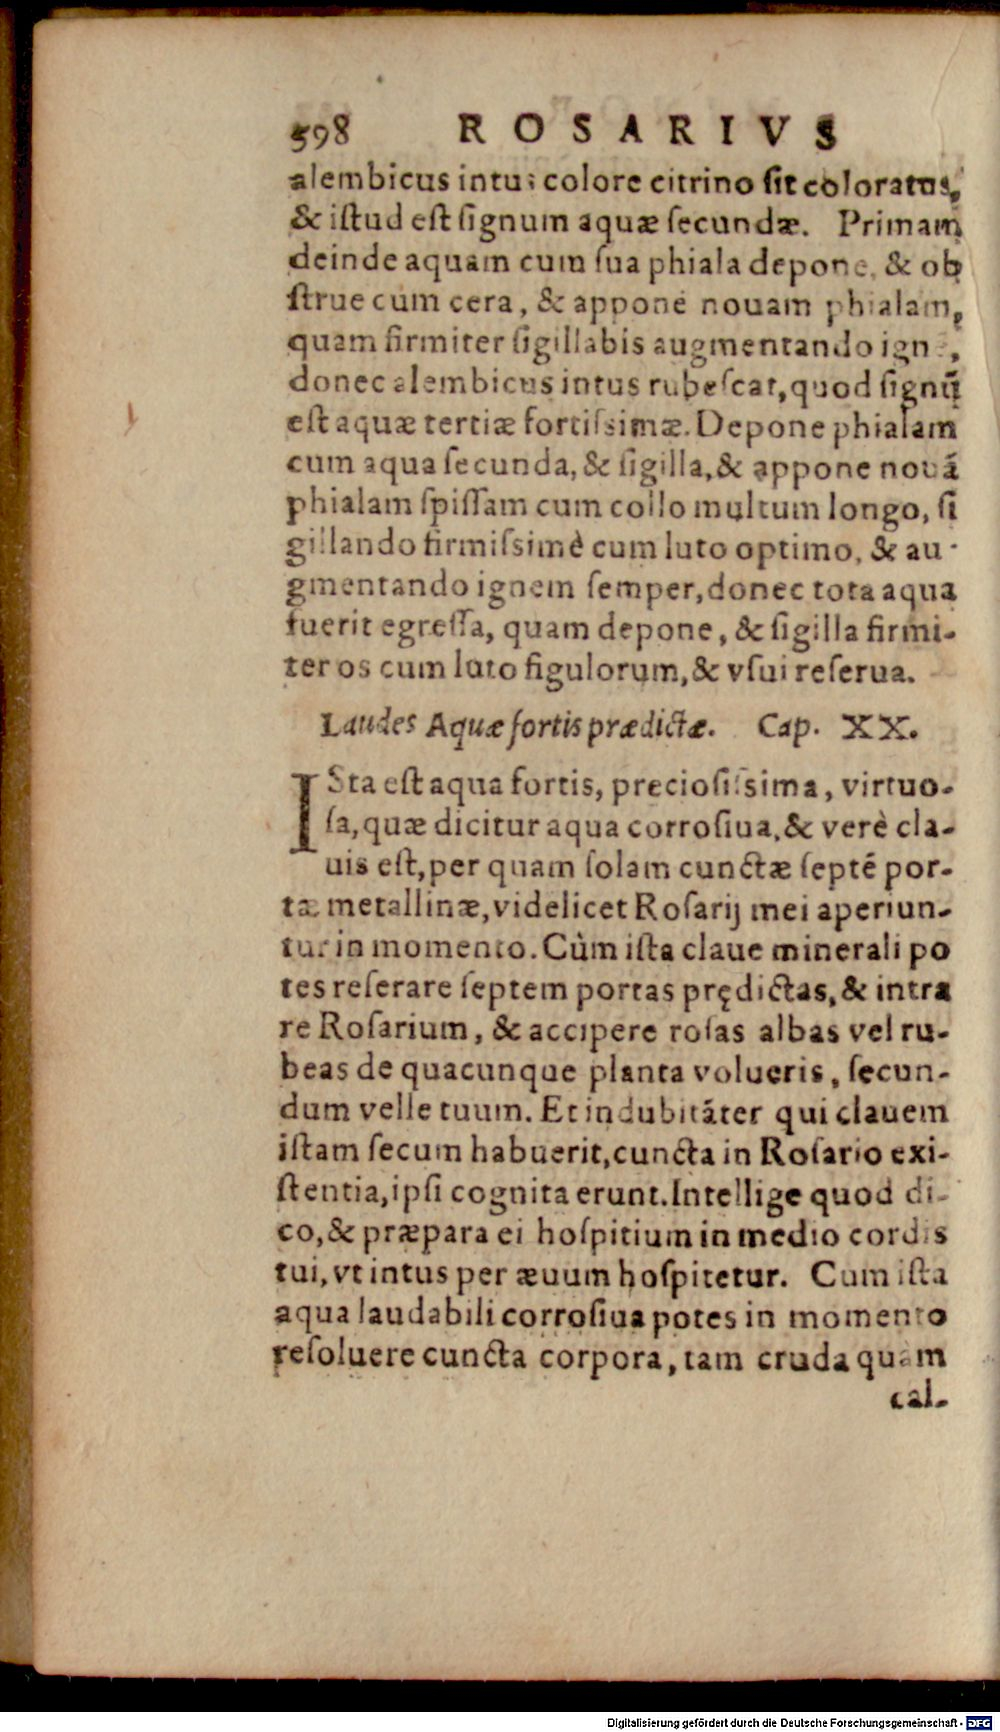 598 ROSARIVS
alembicus intus colore citrino ſit coloratus,
& iſtud eſt ſignum aquæ ſecundæ. Primam
deinde aquam cum ſua phiala depone, & ob
ſtrue cum cera, & appone nouam phialam,
quam firmiter ſigillabis augmentando igne,
donec alembicus intus rubeſcat, quod ſignũ
eſt aquæ tertiæ fortiſsimæ. Depone phialam
cum aqua ſecunda, & ſigilla, & appone nouã
phialam ſpiſſam cum collo multum longo, ſi
gillando firmiſsimè cum luto optimo, & au-
gmentando ignem ſemper, donec tota aqua
fuerit egreſſa, quam depone, & ſigilla firmi-
ter os cum luto figulorum, & vſui reſerua.
Laudes Aquæ fortis prædictæ. Cap. XX.
ISta eſt aqua fortis, precioſiſsima, virtuo-
ſa, quæ dicitur aqua corroſiua, & verè cla-
uis eſt, per quam ſolam cunctæ ſeptẽ por-
tæ metallinæ, videlicet Roſarij mei aperiun-
tur in momento. Cùm iſta claue minerali po
tes reſerare ſeptem portas prędictas, & intra
re Roſarium, & accipere roſas albas vel ru-
beas de quacunque planta volueris, ſecun-
dum velle tuum. Et indubitãter qui clauem
iſtam ſecum habuerit, cuncta in Roſario exi-
ſtentia, ipſi cognita erunt. Intellige quod di-
co, & præpara ei hoſpitium in medio cordis
tui, vt intus per æuum hoſpitetur. Cum iſta
aqua laudabili corroſiua potes in momento
reſoluere cuncta corpora, tam cruda quàm
cal-
Digitalisierung gefördert durch die Deutsche Forschungsgemeinschaft - DFG